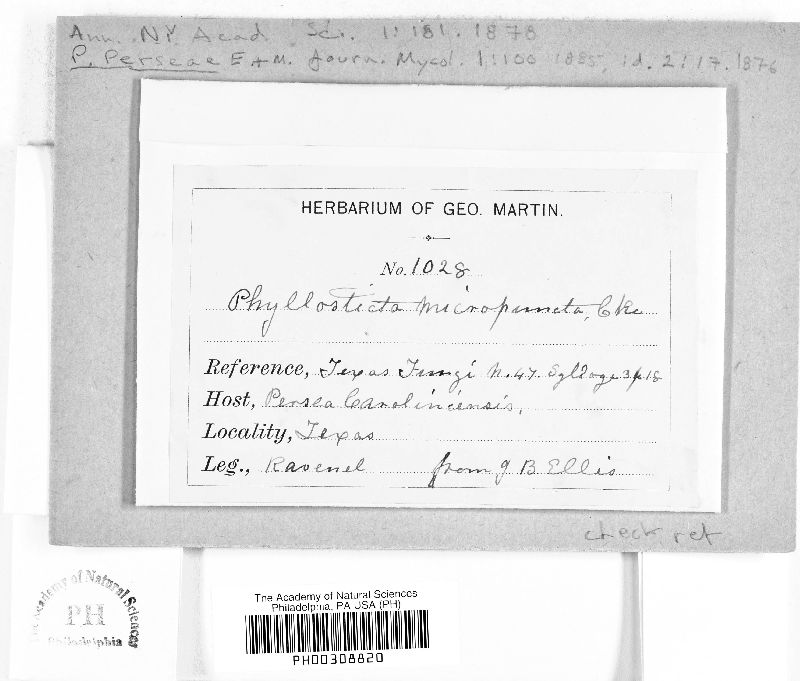 Ann. NY. Acad. Sci. 1:181. 1878
P. Perseae E+M. Journ. Mycol. 1:100 1885, id. 2:17. 1876
HERBARIUM OF GEO. MARTIN.
No. 1028
Phyllosticta micropuncta, Cke
Reference, Texas Fungi N. 47. Sylloge 3 p 18
Host, Persea Caroliniensis,
Locality, Texas
Leg., Ravenel from J B Ellis
check ref
The Academy of Natural Sciences
Philadelphia
PH
The Academy of Natural Sciences
Philadelphia, PA USA (PH)
PH00308820